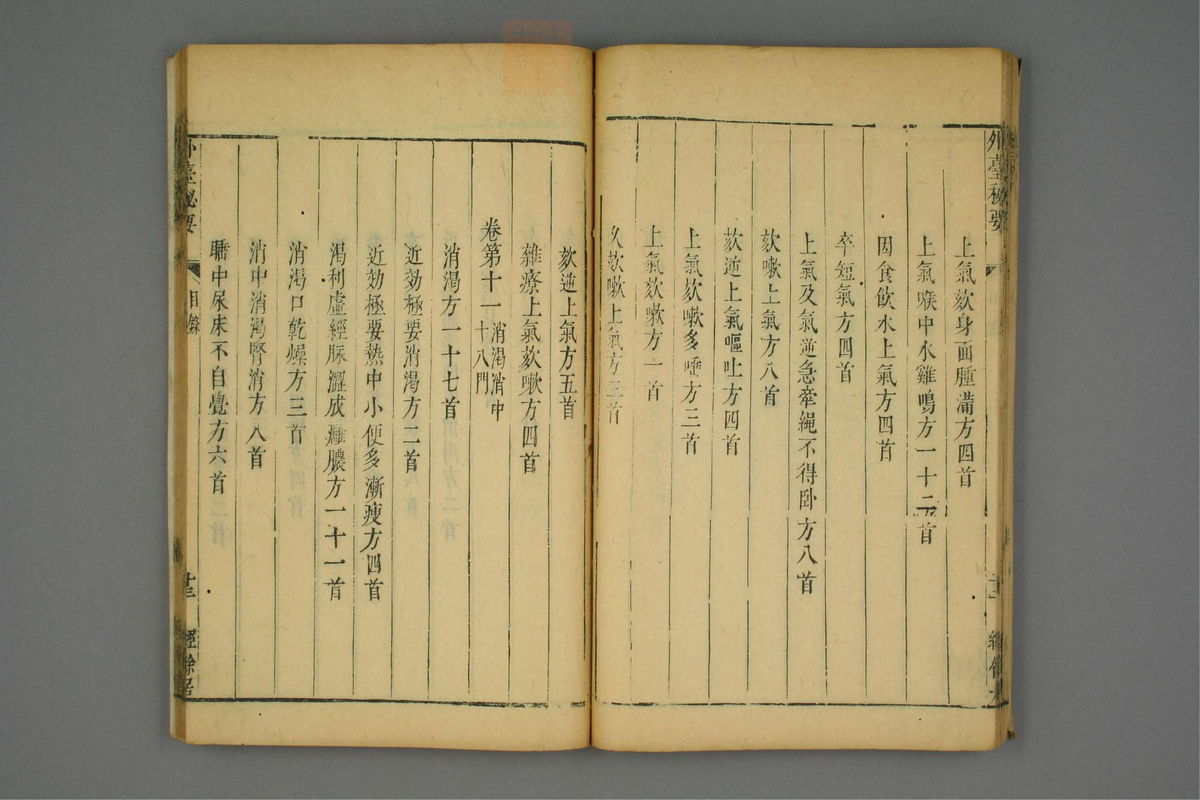 外臺秘要
上氣欬身面腫滿方四首
上氣喉中水雞鳴方一十二首
因食飲水上氣方四首
卒短氣方四首
上氣及氣逆急牽繩不得卧方八首
欬嗽上氣方八首
欬逆上氣嘔吐方四首
上氣欬嗽多唾方三首
上氣欬嗽方一首
久欬嗽上氣方三首
欬逆上氣方五首
雜療上氣欬嗽方四首
卷第十一 消渴消中十八門
消渴方一十七首
近効極要消渴方二首
近効極要熱中小便多漸瘦方四首
渴利虛經脉澀成癰膿方一十一首
消渴口乾燥方三首
消中消渴腎消方八首
睡中尿床不自覺方六首
外臺秘要 目錄 經餘居